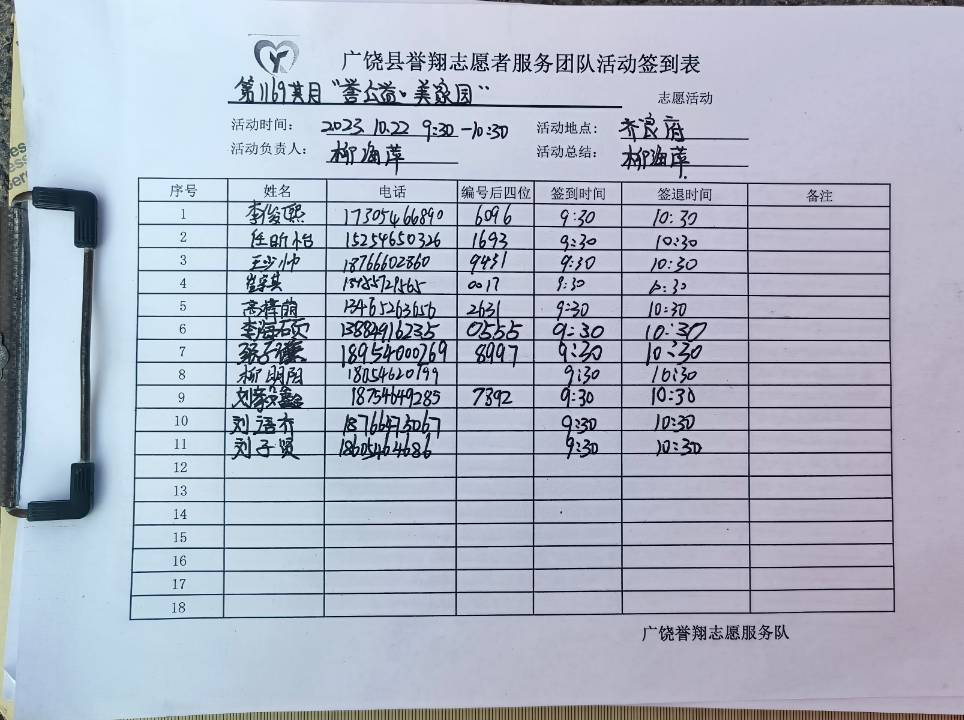 广饶县誉翔志愿者服务团队活动签到表
第1169期 "誉公益·美家园" 志愿活动
活动时间: 2023.10.22 9:30-10:30 活动地点: 齐良府
活动负责人: 柳海萍 活动总结: 柳海萍
序号 姓名 电话 编号后四位 签到时间 签退时间 备注
1 李俊熙 17305466890 6096 9:30 10:30
2 任昕怡 15254650326 1693 9:30 10:30
3 王少帅 18766602860 9431 9:30 10:30
4 0017 9:30 10:30
5 13465263656 2631 9:30 10:30
6 李海硕 13884916235 0555 9:30 10:30
7 张子 18954000769 8997 9:30 10:30
8 柳明阳 18054620199 9:30 10:30
9 刘毅鑫 18754649285 7392 9:30 10:30
10 刘语乔 18766473067 9:30 10:30
11 刘子贤 18605464686 9:30 10:30
12
13
14
15
16
17
18
广饶誉翔志愿服务队